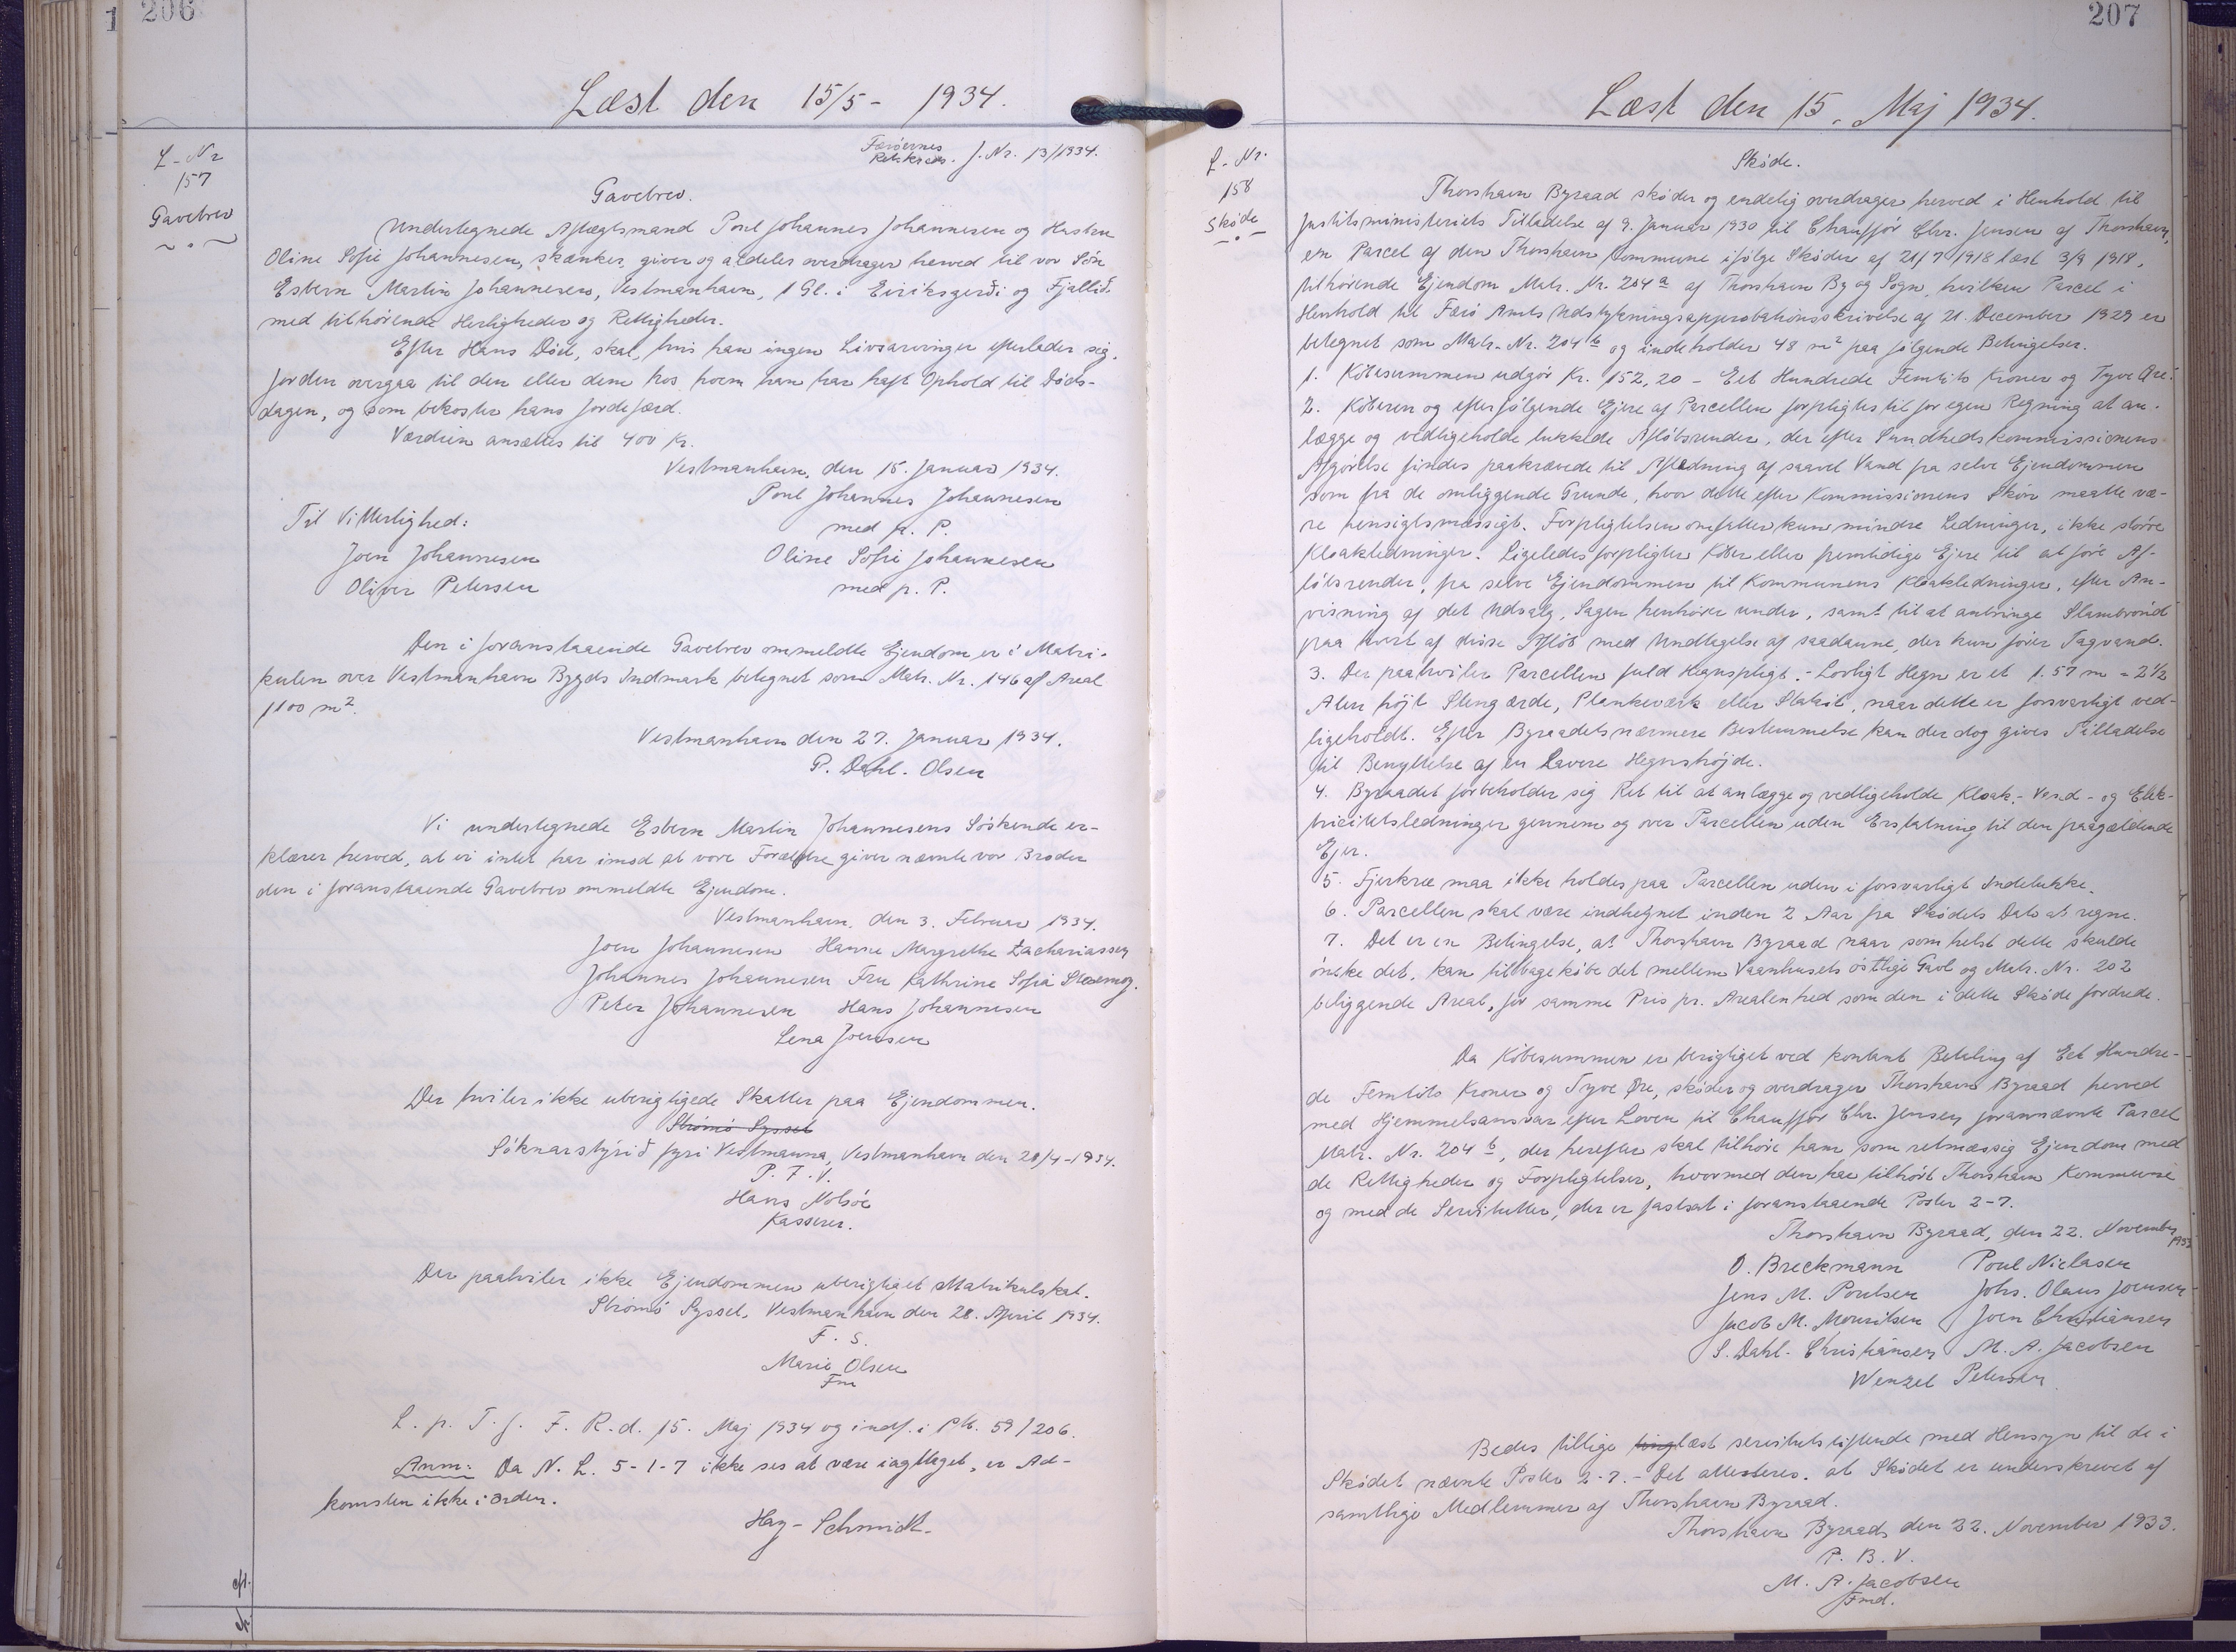 206
Læst den 15/5 - 1934.
L-Nr
157
Gavebrev
Færøernes
Retskreds. J. Nr. 13/1934.
Gavebrev.
Undertegnede Aftægtsmand Poul Johannes Johannesen og Hustru
Oline Sofie Johannesen, skænker, giver og aldeles overdrager herved til vor Søn
Esbern Martin Johannesen, Vestmanhavn, 1 Gl. i Eiriksgerði og Fjallið.
med tilhørende Herligheder og Rettigheder.
Efter Hans Død, skal, hvis han ingen Livsarvinger efterlader sig,
Jorden overgaa til den eller dem hos hvem han har haft Ophold til Døds-
dagen, og som bekoster hans Jordefærd.
Værdien ansættes til 400 Kr.
Vestmanhavn, den 15. Januar 1934.
Poul Johannes Johannesen
Til Vitterlighed:
med p. P.
Joen Johannesen
Oline Sofie Johannesen
Oliver Petersen
med p. P.
Den i foranstaaende Gavebrev ommeldte Ejendom er i Matri-
kulen over Vestmanhavn Bygds Indmark betegnet som Matr. Nr. 146 af Areal
1100 m².
Vestmanhavn den 27. Januar 1934.
P. Dahl-Olsen
Vi undertegnede Esbern Martin Johannesens Søskende er-
klærer herved, at vi intet har imod at vore Forældre giver nævnte vor Broder
den i foranstaaende Gavebrev ommeldte Ejendom.
Vestmanhavn, den 3. Februar 1934.
Joen Johannesen Hanne Margrethe Zachariassen
Johannes Johannesen Fru Kathrine Sofia
Peter Johannesen Hans Johannesen
Lena Joensen
Der hviler ikke uberigtigede Skatter paa Ejendommen.
Strømø Syssel
Sóknarstýrið fyri Vestmanna, Vestmanhavn den 28/4-1934.
P. F. V.
Hans Nolsöe
Kasserer.
Der paahviler ikke Ejendommen uberigtiget Matrikulskat.
Strømø Syssel, Vestmanhavn den 28. April 1934.
F. S.
Marie Olsen
Fm
L. p. T. f. F. R. d. 15. Maj 1934 og indf. i PK. 59/206.
Anm: Da N. L. 5-1-7 ikke ses at være iagttaget, er Ad-
komsten ikke i orden.
Hay-Schmidt-
207
Læst den 15. Maj 1934.
L-Nr.
158
Skøde
Skøde.
Thorshavn Byraad skøder og endelig overdrager herved i Henhold til
Justitsministeriets Tilladelse af 9. Januar 1930 til Chauffør Chr. Jensen af Thorshavn,
en Parcel af den Thorshavn Kommune ifølge Skøder af 21/7 1918 læst 3/9 1918,
tilhørende Ejendom Matr. Nr. 204 a af Thorshavn By og Sogn, hvilken Parcel i
Henhold til Færø Amts Udstykningsapprobationsskrivelse af 21. December 1929 er
betegnet som Matr. Nr. 204 b og indeholder 48 m² paa følgende Betingelser.
1. Købesummen udgør Kr. 152,20 - Eet Hundrede Femtito Kroner og Tyve Øre.
2. Køberen og efterfølgende Ejere af Parcellen forpligtes til for egen Regning at an-
lægge og vedligeholde lukkede Afløbsrender, der efter Sundhedskommissionens
Afgørelse findes paakrævede til Afledning af saavel Vand fra selve Ejendommen
som fra de omliggende Grunde, hvor dette efter Kommissionens Skøn maatte væ-
re hensigtsmæssigt. Forpligtelsen omfatter kun mindre Ledninger, ikke større
Kloakledninger. Ligeledes forpligter Køber eller fremtidige Ejere til at føre Af-
løbsrender, fra selve Ejendommen til Kommunens Kloakledninger, efter An-
visning af det Udvalg, Sagen henhører under, samt til at anbringe Slambrønd
paa hvert af disse Afløb med Undtagelse af saadanne, der kun fører Tagvand.
3. Der paahviler Parcellen fuld Hegnspligt. - Lovligt Hegn er et 1.57 m - 2½
Alen højt Stengærde, Plankeværk eller Stakit, naar dette er forsvarligt ved-
ligeholdt. Efter Byraadets nærmere Bestemmelse kan der dog gives Tilladelse
til Benyttelse af en lavere Hegnshøjde.
4. Byraadet forbeholder sig Ret til at anlægge og vedligeholde Kloak- Vand- og Elek-
tricitetsledninger gennem og over Parcellen uden Erstatning til den paagældende
Ejer.
5. Fjerkræ maa ikke holdes paa Parcellen uden i forsvarligt Indelukke.
6. Parcellen skal være indhegnet inden 2 Aar fra Skødets Dato at regne.
7. Det er en Betingelse, at Thorshavn Byraad naar som helst dette skulde
ønske det, kan tilbagekøbe det mellem Vaanhusets østlige Gavl og Matr. Nr. 202
beliggende Areal, for samme Pris pr. Arealenhed som den i dette Skøde fordrede.
Da Købesummen er berigtiget ved kontant Betaling af Eet Hundre-
de Femtito Kroner og Tyve Øre, skøder og overdrager Thorshavn Byraad herved
med Hjemmelsansvar efter Loven til Chauffør Chr. Jensen forannævnte Parcel
Matr. Nr. 204 b, der herefter skal tilhøre ham som retmæssig Ejendom med
de Rettigheder og Forpligtelser, hvormed den har tilhørt Thorshavn Kommune
og med de Servitutter, der er fastsat i foranstaaende Poster 2-7.
Thorshavn Byraad, den 22. November
1933
O. Breckmann Poul Niclasen
Jens M. Poulsen Johs. Olaus Joensen
Jacob M. Mouritsen Joen Christiansen
S. Dahl-Christiansen M. A. Jacobsen
Wenzel Petersen.
Bedes tillige tinglæst servitutstiftende med Hensyn til de i
Skødet nævnte Poster 2-7. - Det attesteres, at Skødet er underskrevet af
samtlige Medlemmer af Thorshavn Byraad.
Thorshavn Byraad, den 22. November 1933.
P. B. V.
M. A. Jacobsen
Fmd.